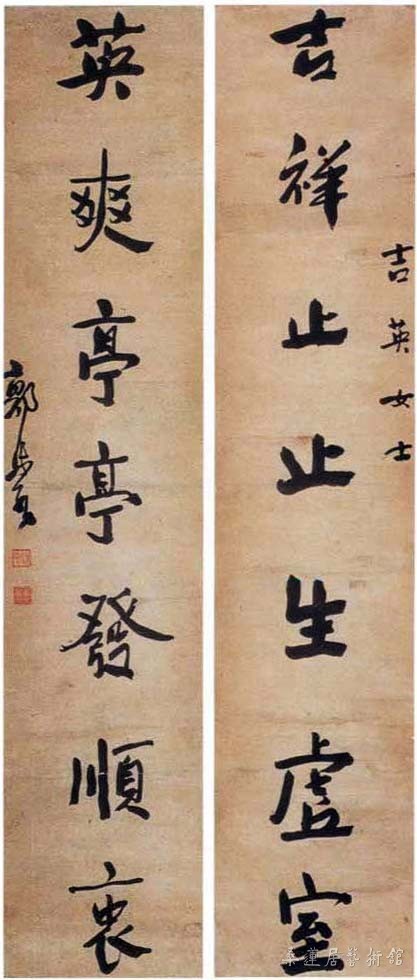 吉英女士
吉祥止止生虛室
英爽亭亭發順衷
桑蓮居藝術館